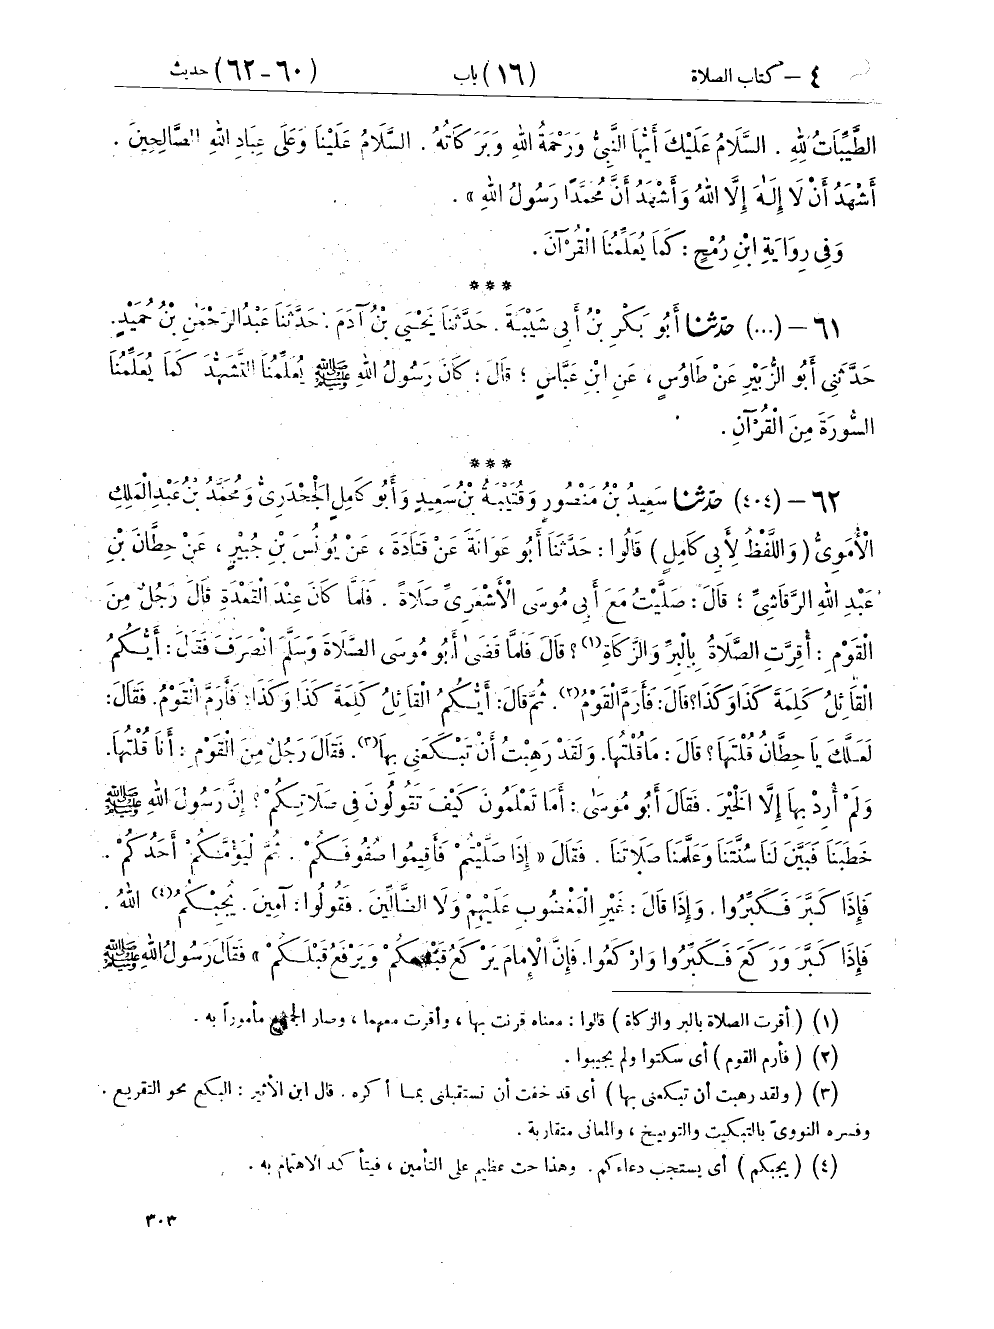 ٤ – كتاب الصلاة (١٦) باب (٦٠ – ٦٢) حديث
الطَّيِّبَاتُ لِلهِ . السَّلَامُ عَلَيْكَ أَيُّهَا النَّبِيُّ وَرَحْمَةُ اللهِ وَبَرَكَاتُهُ . السَّلَامُ عَلَيْنَا وَعَلَى عِبَادِ اللهِ الصَّالِحِينَ .
أَشْهَدُ أَنْ لَا إِلَهَ إِلَّا اللهُ وَأَشْهَدُ أَنَّ مُحَمَّدًا رَسُولُ اللهِ » .
وَفِي رِوَايَةِ ابْنِ رُمْحٍ : كَمَا يُعَلِّمُنَا الْقُرْآنَ .
***
٦١ – (...) حَدَّثَنَا أَبُو بَكْرِ بْنُ أَبِي شَيْبَةَ . حَدَّثَنَا يَحْيَى بْنُ آدَمَ . حَدَّثَنَا عَبْدُ الرَّحْمَنِ بْنُ حُمَيْدٍ .
حَدَّثَنِي أَبُو الزُّبَيْرِ عَنْ طَاوُسٍ ، عَنِ ابْنِ عَبَّاسٍ ؛ قَالَ : كَانَ رَسُولُ اللهِ ﷺ يُعَلِّمُنَا التَّشَهُّدَ كَمَا يُعَلِّمُنَا
السُّورَةَ مِنَ الْقُرْآنِ .
***
٦٢ – (٤٠٤) حَدَّثَنَا سَعِيدُ بْنُ مَنْصُورٍ وَقُتَيْبَةُ بْنُ سَعِيدٍ وَأَبُو كَامِلٍ الْجَحْدَرِيُّ وَمُحَمَّدُ بْنُ عَبْدِ الْمَلِكِ
الْأُمَوِيُّ ( وَاللَّفْظُ لِأَبِي كَامِلٍ ) قَالُوا : حَدَّثَنَا أَبُو عَوَانَةَ عَنْ قَتَادَةَ ، عَنْ يُونُسَ بْنِ جُبَيْرٍ ، عَنْ حِطَّانَ بْنِ
عَبْدِ اللهِ الرَّقَاشِيِّ ؛ قَالَ : صَلَّيْتُ مَعَ أَبِي مُوسَى الْأَشْعَرِيِّ صَلَاةً . فَلَمَّا كَانَ عِنْدَ الْقَعْدَةِ قَالَ رَجُلٌ مِنَ
الْقَوْمِ : أُقِرَّتِ الصَّلَاةُ بِالْبِرِّ وَالزَّكَاةِ(١) ؟ قَالَ فَلَمَّا قَضَى أَبُو مُوسَى الصَّلَاةَ وَسَلَّمَ انْصَرَفَ فَقَالَ : أَيُّكُمُ
الْقَائِلُ كَلِمَةَ كَذَا وَكَذَا؟ قَالَ : فَأَرَمَّ الْقَوْمُ(٢) . ثُمَّ قَالَ : أَيُّكُمُ الْقَائِلُ كَلِمَةَ كَذَا وَكَذَا؟ فَأَرَمَّ الْقَوْمُ . فَقَالَ :
لَعَلَّكَ يَا حِطَّانُ قُلْتَهَا؟ قَالَ : مَا قُلْتُهَا . وَلَقَدْ رَهِبْتُ أَنْ تَبْكَعَنِي بِهَا(٣) . فَقَالَ رَجُلٌ مِنَ الْقَوْمِ : أَنَا قُلْتُهَا .
وَلَمْ أُرِدْ بِهَا إِلَّا الْخَيْرَ . فَقَالَ أَبُو مُوسَى : أَمَا تَعْلَمُونَ كَيْفَ تَقُولُونَ فِي صَلَاتِكُمْ ؟ إِنَّ رَسُولَ اللهِ ﷺ
خَطَبَنَا فَبَيَّنَ لَنَا سُنَّتَنَا وَعَلَّمَنَا صَلَاتَنَا . فَقَالَ « إِذَا صَلَّيْتُمْ فَأَقِيمُوا صُفُوفَكُمْ . ثُمَّ لْيَؤُمَّكُمْ أَحَدُكُمْ .
فَإِذَا كَبَّرَ فَكَبِّرُوا . وَإِذَا قَالَ : غَيْرِ الْمَغْضُوبِ عَلَيْهِمْ وَلَا الضَّالِّينَ . فَقُولُوا : آمِينَ . يُجِبْكُمُ(٤) اللهُ .
فَإِذَا كَبَّرَ وَرَكَعَ فَكَبِّرُوا وَارْكَعُوا . فَإِنَّ الْإِمَامَ يَرْكَعُ قَبْلَكُمْ وَيَرْفَعُ قَبْلَكُمْ » فَقَالَ رَسُولُ اللهِ ﷺ
(١) ( أقرت الصلاة بالبر والزكاة ) قالوا : معناه قرنت بها ، وأقرت معهما ، وصار الجميع مأموراً به .
(٢) ( فأرم القوم ) أى سكتوا ولم يجيبوا .
(٣) ( ولقد رهبت أن تبكعنى بها ) أى قد خفت أن تستقبلنى بما أكره . قال ابن الأثير : البكع نحو التقريع .
وفسره النووىّ بالتبكيت والتوبيخ ، والمعانى متقاربة .
(٤) ( يجبكم ) أى يستجب دعاءكم . وهذا حث عظيم على التأمين ، فيتأكد الاهتمام به .
٣٠٣